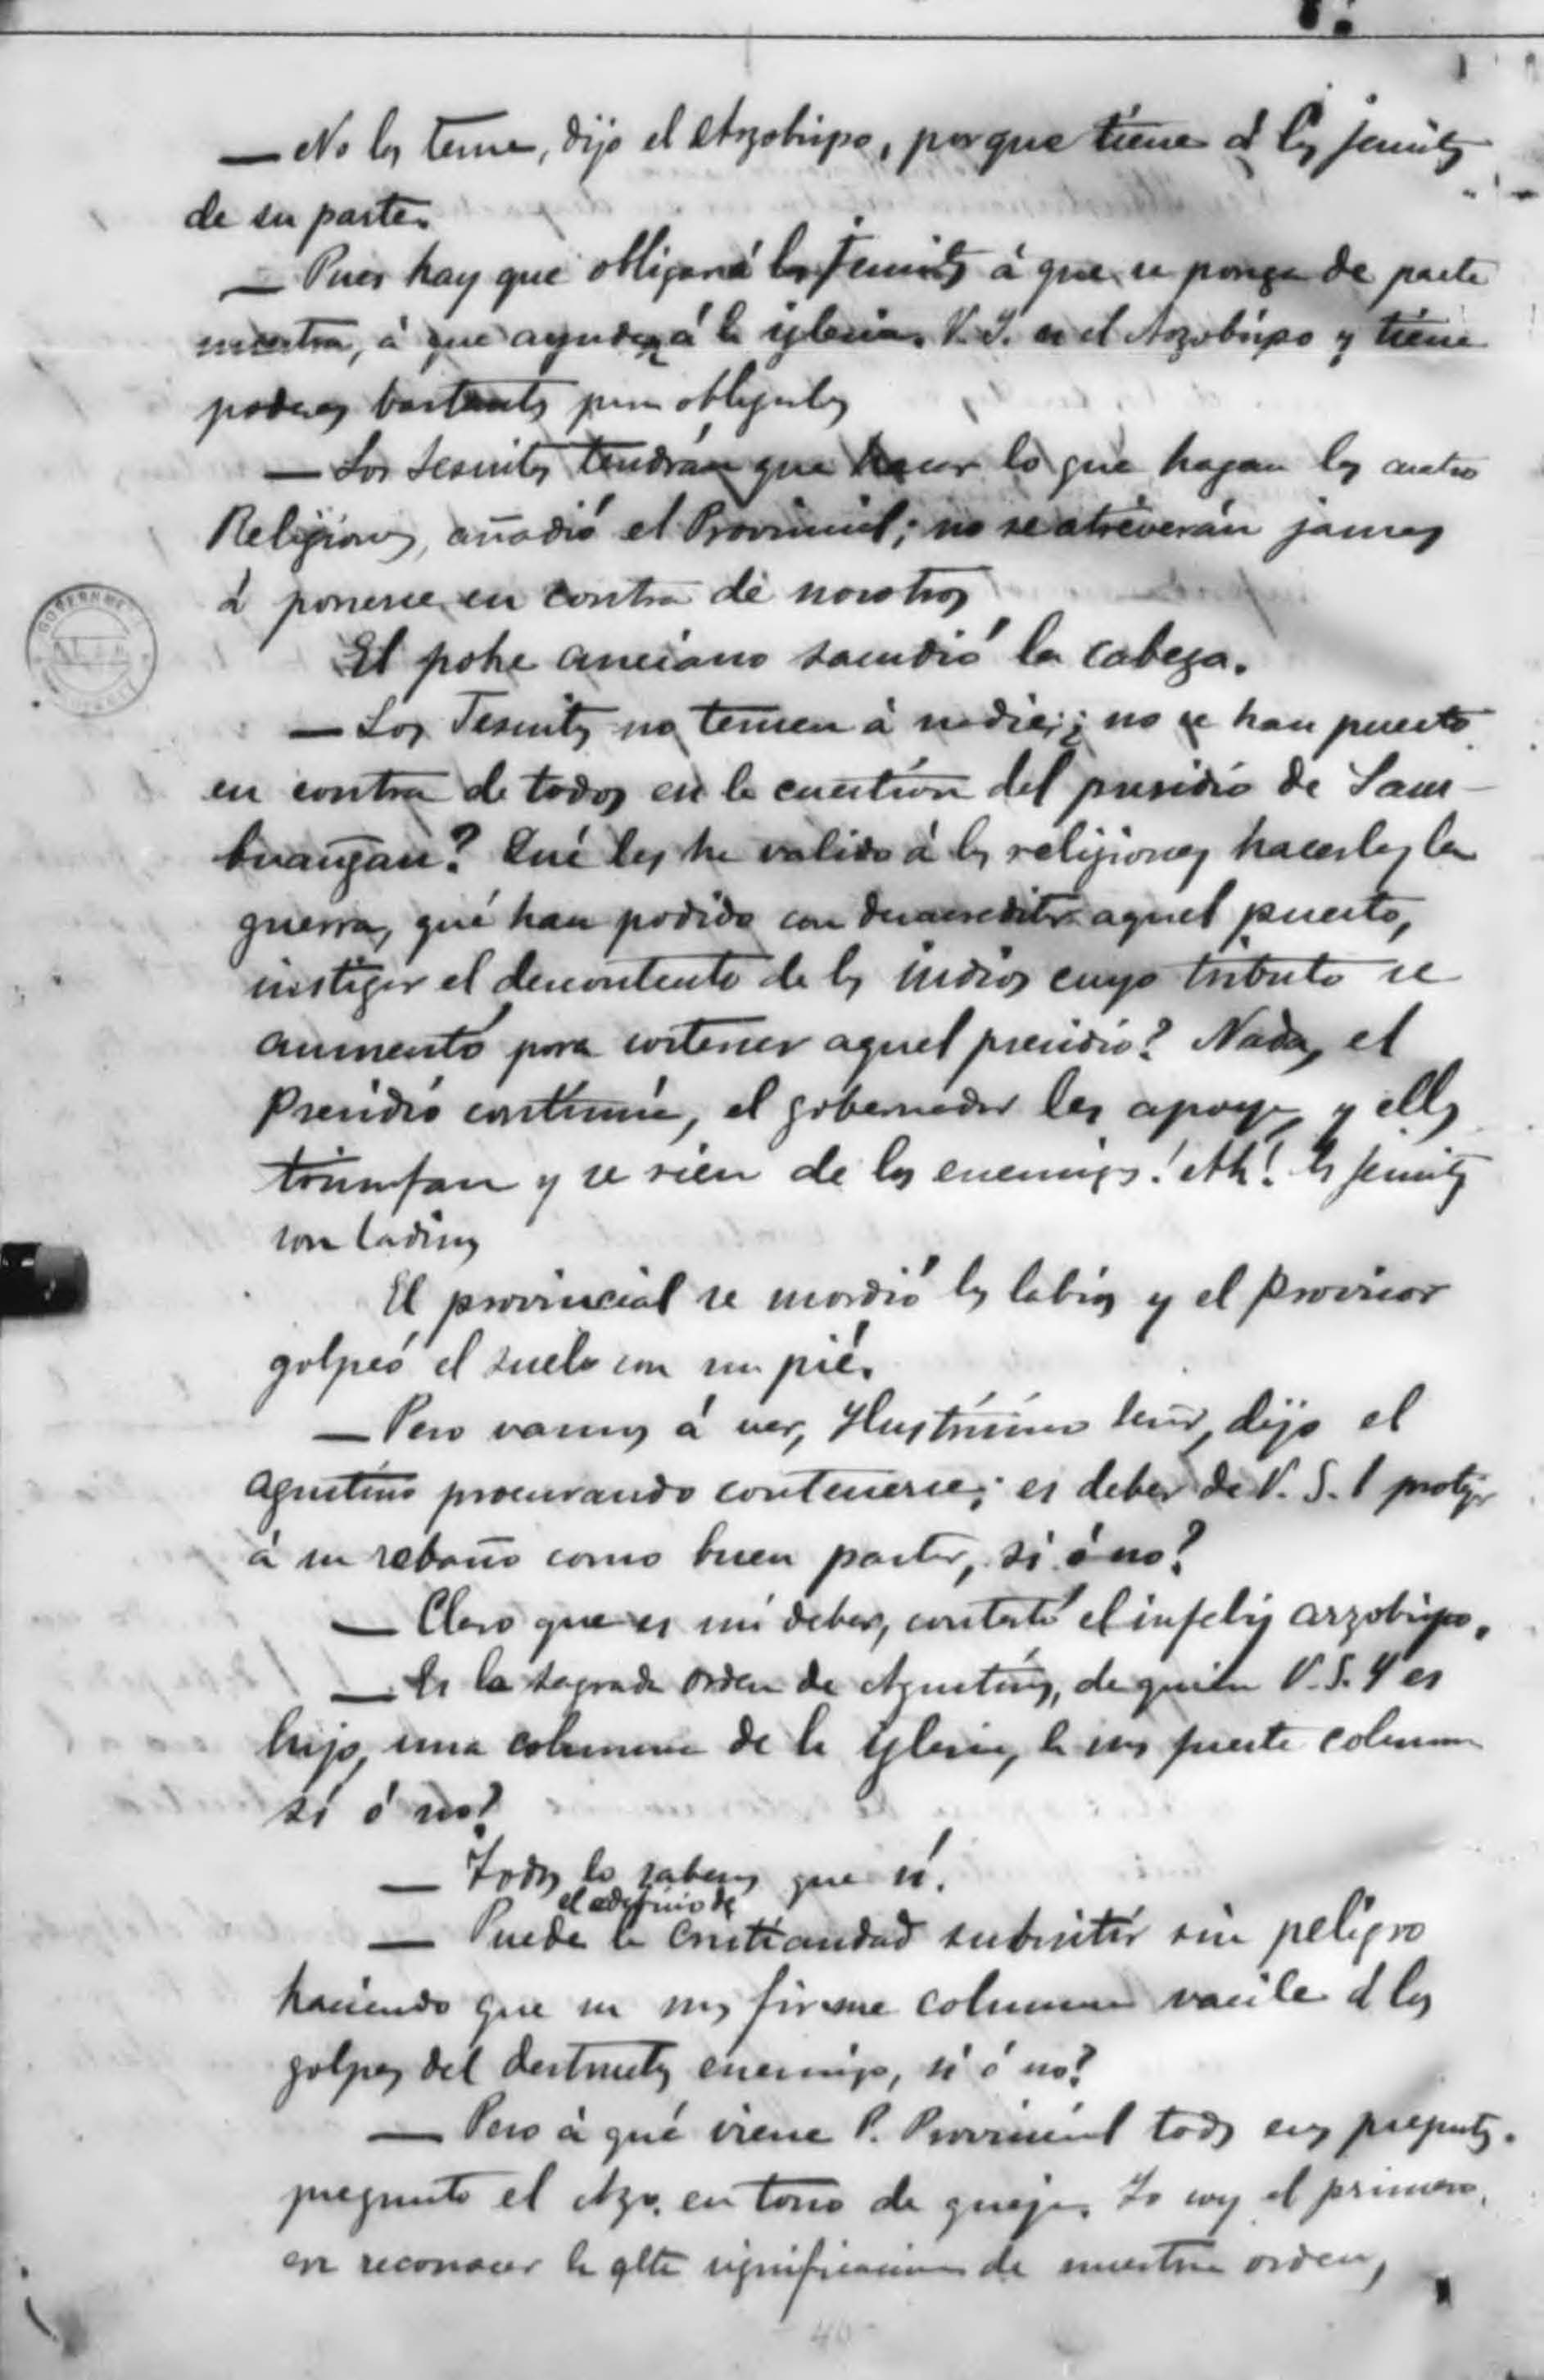 — No los teme, dijo el Arzobispo, porque tiene á los jesuitas
de su parte.
— Pues hay que obligar á los Jesuitas á que se pongan de parte
nuestra, á que ayuden á la iglesia. V. I. es el Arzobispo y tiene
poderes bastantes para obligarlos
— Los Jesuitas tendrán que hacer lo que hagan las cuatro
Religiones, añadió el Provincial; no se atreverán jamas
á ponerse en contra de nosotros
El pobre anciano sacudió la cabeza.
— Los Jesuitas no temen á nadie; ¿no se han puesto
en contra de todos en la cuestion del presidio de Sam-
buangan? Qué les ha valido á las religiones hacerles la
guerra, qué han podido con desacreditar aquel puesto,
instigar el descontento de los indios cuyo tributo se
aumentó para sostener aquel presidio? Nada, el
Presidio continúa, el gobernador les apoya, y ellos
triunfan y se rien de los enemigos. ¡Ah! los jesuitas
son ladinos
El provincial se mordió los labios y el provisor
golpeó el suelo con su pié.
— Pero vamos á ver, Ilustrísimo señor, dijo el
agustino procurando contenerse; es deber de V. S. I protejer
á su rebaño como buen pastor, si ó no?
— Claro que es mi deber, contestó el infeliz arzobispo.
— Es la sagrada orden de Agustinos, de quien V. S. Y es
hijo, una columna de la iglesia, la mas fuerte columna
si ó no?
— Todos lo sabemos que sí.
el edificio de
— Puede la cristiandad subsistir sin peligro
haciendo que su mas firme columna vacile á los
golpes del destructor enemigo, si ó no?
— Pero á qué viene P. Provincial todas esas preguntas.
pregunto el Azo. en tono de queja. Yo soy el primero
en reconocer la alta significacion de nuestra orden,
40